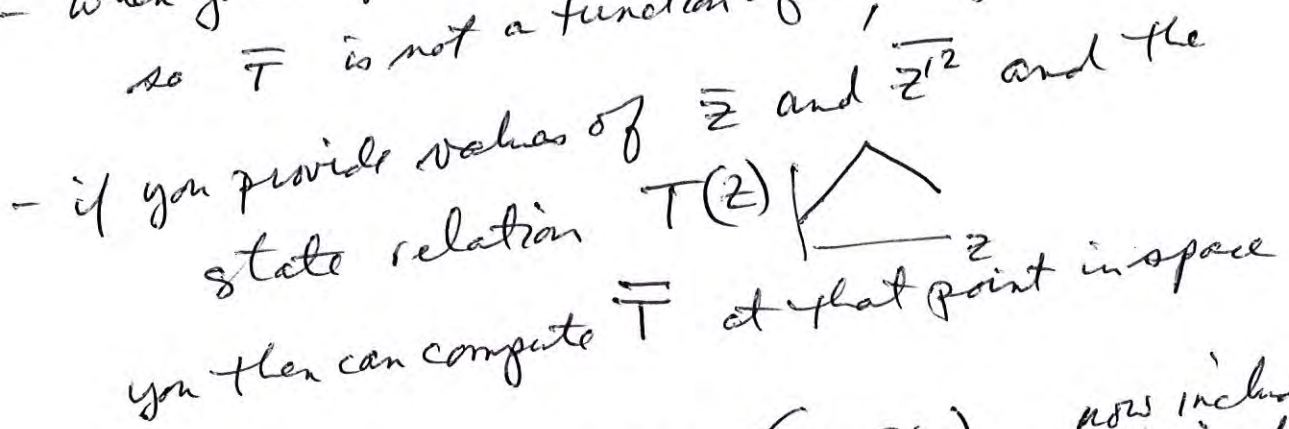 - when
so T̅ is not a function of
- if you provide values of z̅ and z'² and the
state relation T(z) z
you then can compute T̅ at that point in space
now